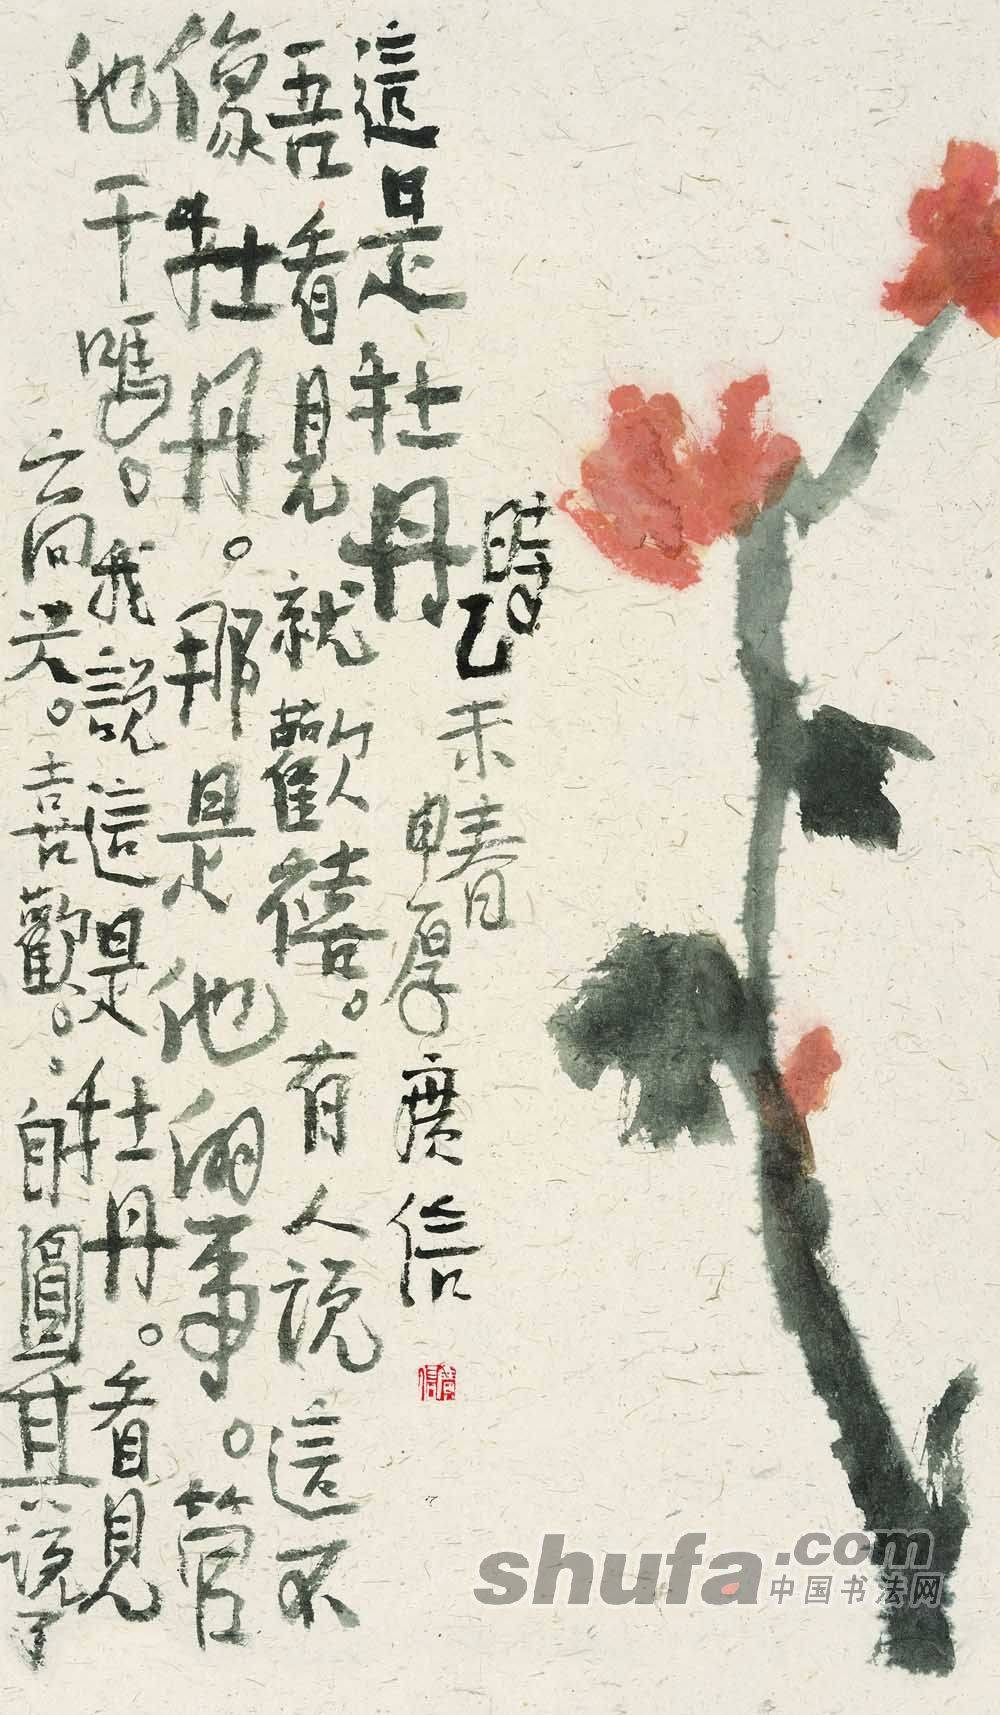 這是牡丹
吾看見就歡禧。有人说這不
像牡丹。那是他的事。管
他干嗎。我説這是牡丹。看見
喜歡。自圓其说了
時乙未春
厚廣信
shufa.com
中国书法网